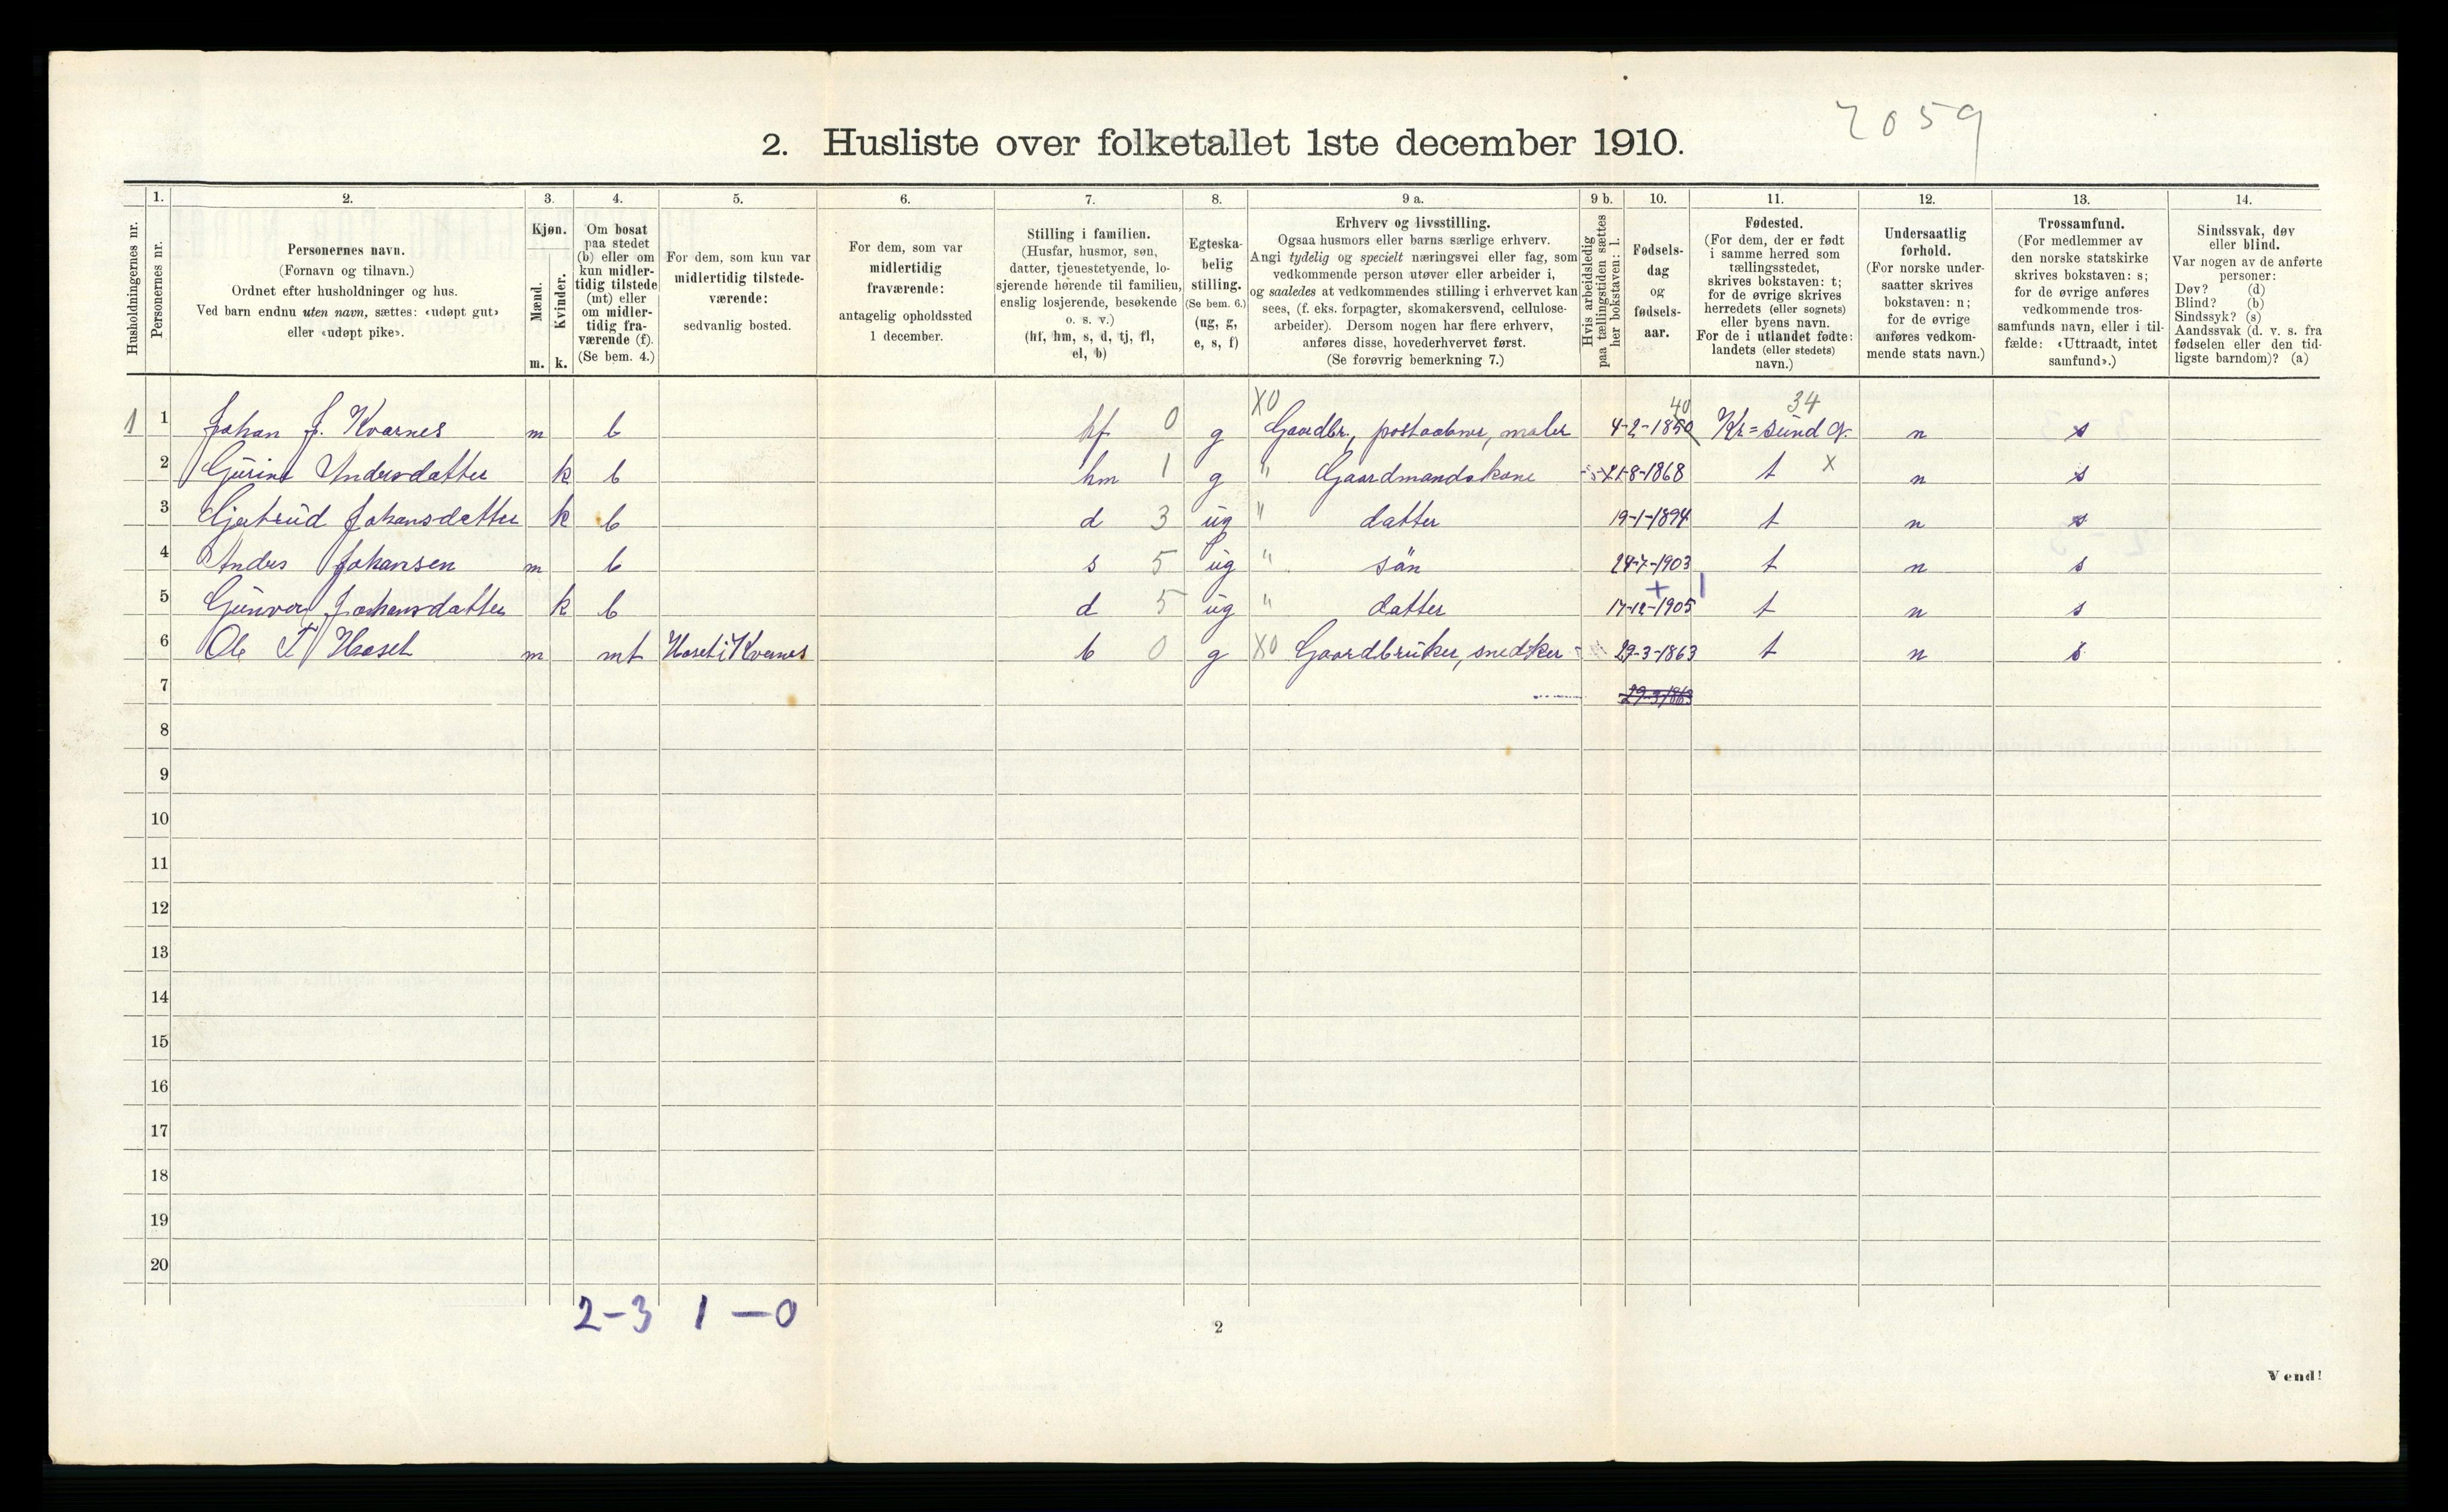 2059
2. Husliste over folketallet 1ste december 1910.
1. 2. 3. 4. 5. 6. 7. 8. 9 a. 9 b. 10. 11. 12. 13. 14.
Husholdningernes nr.
Personernes nr.
Personernes navn.
(Fornavn og tilnavn.)
Ordnet efter husholdninger og hus.
Ved barn endnu uten navn, sættes: «udøpt gut»
eller «udøpt pike».
Kjøn.
Mænd.
Kvinder.
m. k.
Om bosat
paa stedet
(b) eller om
kun midler-
tidig tilstede
(mt) eller
om midler-
tidig fra-
værende (f).
(Se bem. 4.)
For dem, som kun var
midlertidig tilstede-
værende:
sedvanlig bosted.
For dem, som var
midlertidig
fraværende:
antagelig opholdssted
1 december.
Stilling i familien.
(Husfar, husmor, søn,
datter, tjenestetyende, lo-
sjerende hørende til familien,
enslig losjerende, besøkende
o. s. v.)
(hf, hm, s, d, tj, fl,
el, b)
Egteska-
belig
stilling.
(Se bem. 6.)
(ug, g,
e, s, f)
Erhverv og livsstilling.
Ogsaa husmors eller barns særlige erhverv.
Angi tydelig og specielt næringsvei eller fag, som
vedkommende person utøver eller arbeider i,
og saaledes at vedkommendes stilling i erhvervet kan
sees, (f. eks. forpagter, skomakersvend, cellulose-
arbeider). Dersom nogen har flere erhverv,
anføres disse, hovederhvervet først.
(Se forøvrig bemerkning 7.)
Hvis arbeidsledig
paa tællingstiden sættes
her bokstaven: l.
Fødsels-
dag
og
fødsels-
aar.
Fødested.
(For dem, der er født
i samme herred som
tællingsstedet,
skrives bokstaven: t;
for de øvrige skrives
herredets (eller sognets)
eller byens navn.
For de i utlandet fødte:
landets (eller stedets)
navn.)
Undersaatlig
forhold.
(For norske under-
saatter skrives
bokstaven: n;
for de øvrige
anføres vedkom-
mende stats navn.)
Trossamfund.
(For medlemmer av
den norske statskirke
skrives bokstaven: s;
for de øvrige anføres
vedkommende tros-
samfunds navn, eller i til-
fælde: «Uttraadt, intet
samfund».)
Sindssvak, døv
eller blind.
Var nogen av de anførte
personer:
Døv? (d)
Blind? (b)
Sindssyk? (s)
Aandssvak (d. v. s. fra
fødselen eller den tid-
ligste barndom)? (a)
X0 40 34
1 1 Johan J. Kvarnes m b hf 0 g Gaardbr, postaabner, maler 4-2-1850 Kr=sund n s
2 Gurine Andersdatter k b hm 1 g " Gaardmandskone 21-8-1868 t X n s
3 Gjertrud Johansdatter k b d 3 ug " datter 19-1-1894 t n s
4 Anders Johansen m b s 5 ug " sön 24-7-1903 t n s
5 Gunvor Johansdatter k b d 5 ug " datter 17-12-1905 t n s
6 Ole T Haset m mt Haset i Kvernes b 0 g X0 Gaardbruker, snedker 29-3-1863 t n s
7 29-3-1863
8
9
10
11
12
13
14
15
16
17
18
19
20
2-3 1-0
2
Vend!